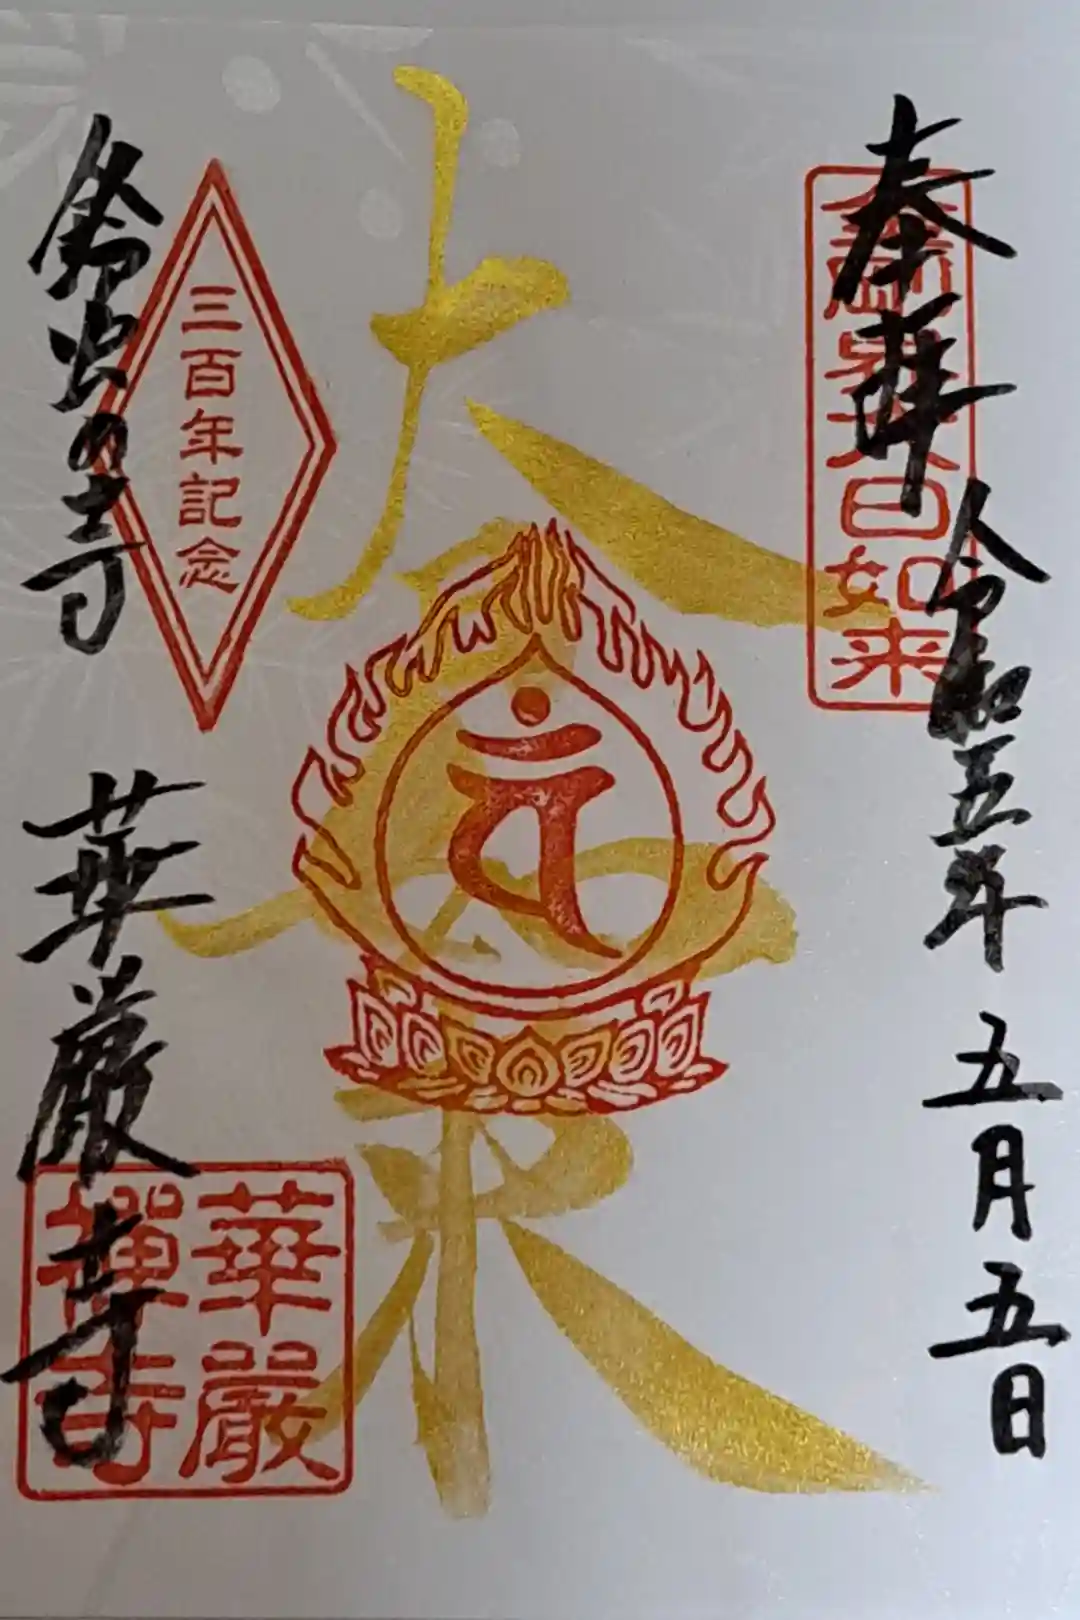 奉拝 令和五年 五月五日
金剛界大日如来
大
来
वं
三百年記念
鈴虫の寺 華厳寺
華嚴
禪寺